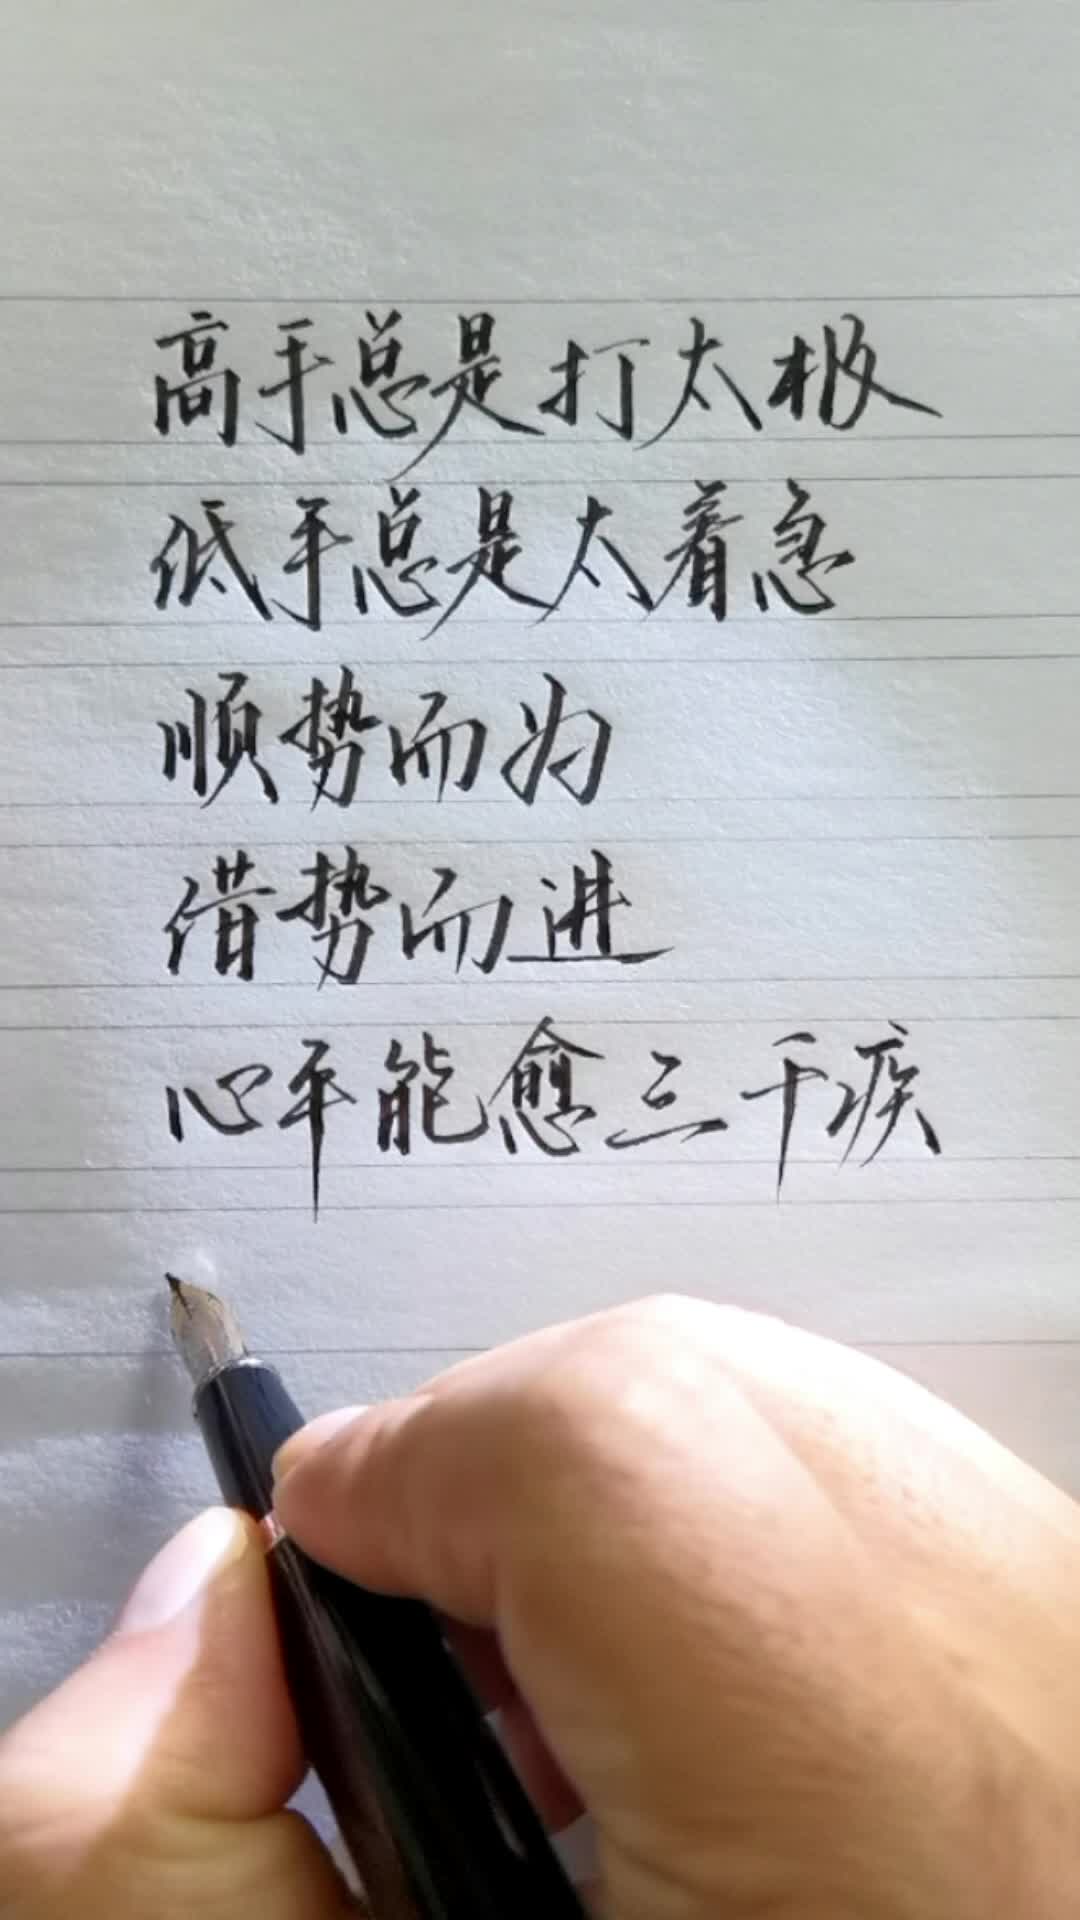 高手总是打太极
低手总是太着急
顺势而为
借势而进
心平能愈三千疾